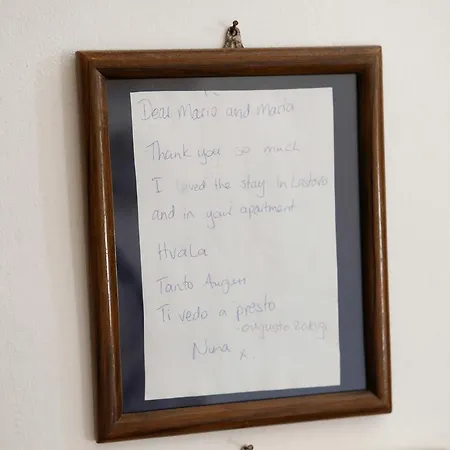 Dear Mario and Maria
Thank you so much
I loved the stay in Lastovo
and in your apartment
Hvala
Tanto Auguri
Ti vedo a presto
Nina x.